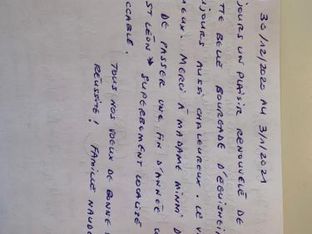 30/12/2020 AU 3/1/2021
JOURS UN PLAISIR RENOUVELÉ DE
TTE BELLE BOURGADE D'EGUISHEIM
JOURS AUSSI CHALEUREUX. LE V
IEUX. MERCI À MADAME MINNI D
DE PASSER UNE FIN D'ANNÉE
ST LÉON SUPERBEMENT LOCALISÉ
CCABLE.
TOUS NOS VOEUX DE BONNE
RÉUSSITE! FAMILLE